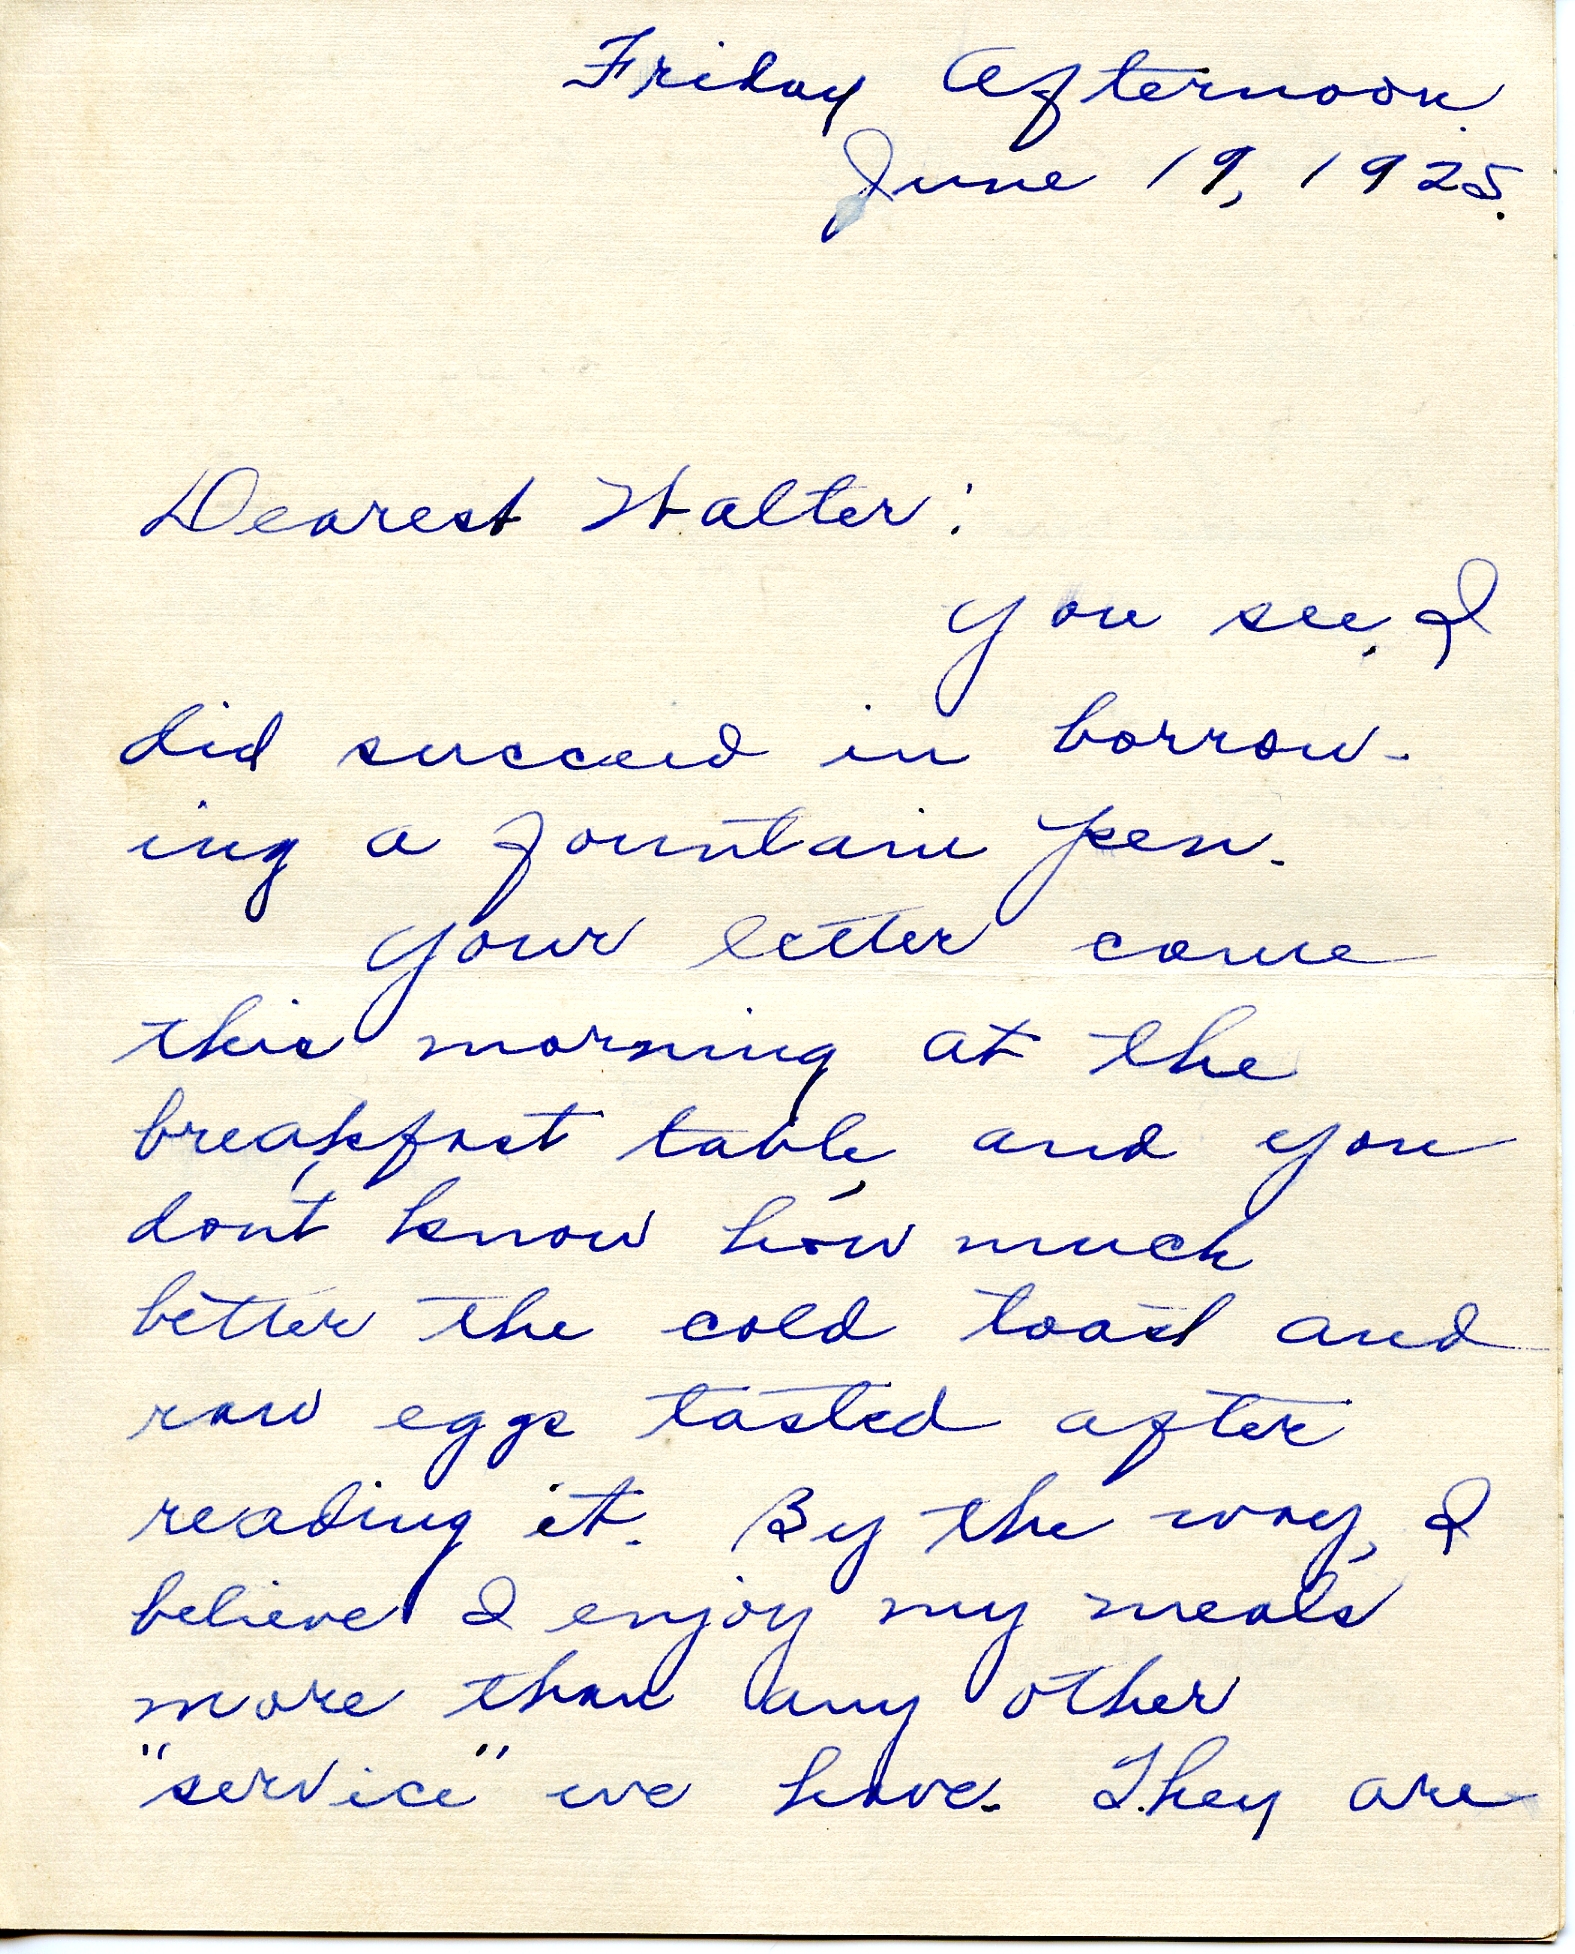 Friday Afternoon.
June 19, 1925.
Dearest Walter:
You see, I
did succeed in borrow-
ing a fountain pen.
Your letter came
this morning at the
breakfast table, and you
don't know how much
better the cold toast and
raw eggs tasted after
reading it. By the way, I
believe I enjoy my meals
more than any other
"service" we have. They are